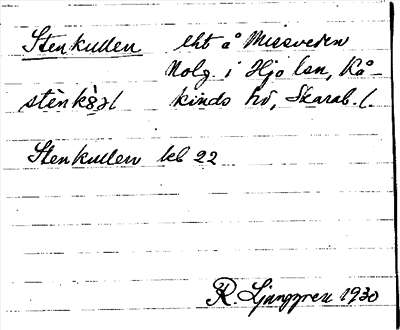 Stenkullen lht å Missveden
Nolg. i Hjo lsn, Kå-
kinds hd, Skarab. l.
Stenkullen kbl 22
R. Ljunggren 1930